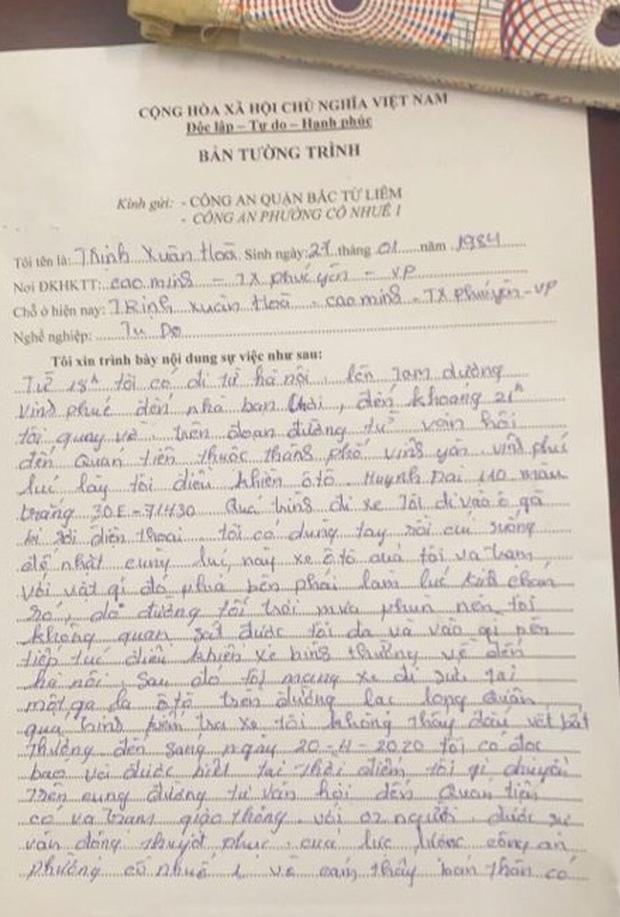 CỘNG HÒA XÃ HỘI CHỦ NGHĨA VIỆT NAM
Độc lập – Tự do – Hạnh phúc
BẢN TƯỜNG TRÌNH
Kính gửi: - CÔNG AN QUẬN BẮC TỪ LIÊM
- CÔNG AN PHƯỜNG CỔ NHUẾ 1
Tôi tên là: Trinh Xuân Hoà Sinh ngày: 27 tháng 01 năm 1984
Nơi ĐKHKTT: cao minh – TX phúc yên – VP
Chỗ ở hiện nay: Trinh Xuân Hoà - cao minh - TX phúc yên - VP
Nghề nghiệp: Tu Do
Tôi xin trình bày nội dung sự việc như sau:
Từ 18h tôi có đi từ hà nội lên Tam dường
vinh phúc đến nhà bạn chơi, đến khoảng 21h
tôi quay về trên đoạn đường từ vân hội
đến Quán tiên thuộc thành phố vinh yên vinh phúc
lúc lày tôi điều khiển ôtô Huynh Dai i10 màu
trắng 30E-71430 Quá trình đi xe Tôi đi vào ổ gà
bị rơi điện thoại tôi có dùng tay rồi cúi xuống
để nhặt cùng lúc này xe ôtô của tôi va trạm
với vật gì đó phía bên phải làm lúc kính chắn
gió, do đường tối trời mưa phùn nên tôi
không quan sát được tôi đã va vào gì nên
tiếp tục điều khiển xe bình thường về đến
hà nội, sau đó tôi mang xe đi sửa tại
một ga ra ôtô trên đường lạc long quân
quá trình kiểm tra xe tôi không thấy dấu vết bất
thường đến sáng ngày 20-4-2020 tôi có đọc
báo và được biết tại thời điểm tôi di chuyển
trên cung đường từ vân hội đến Quan tiên
có va trạm giao thông với 02 người, được sự
vân động thuyết phục của lực lượng công an
phường cổ nhuế 1 và cảm thấy bản thân có